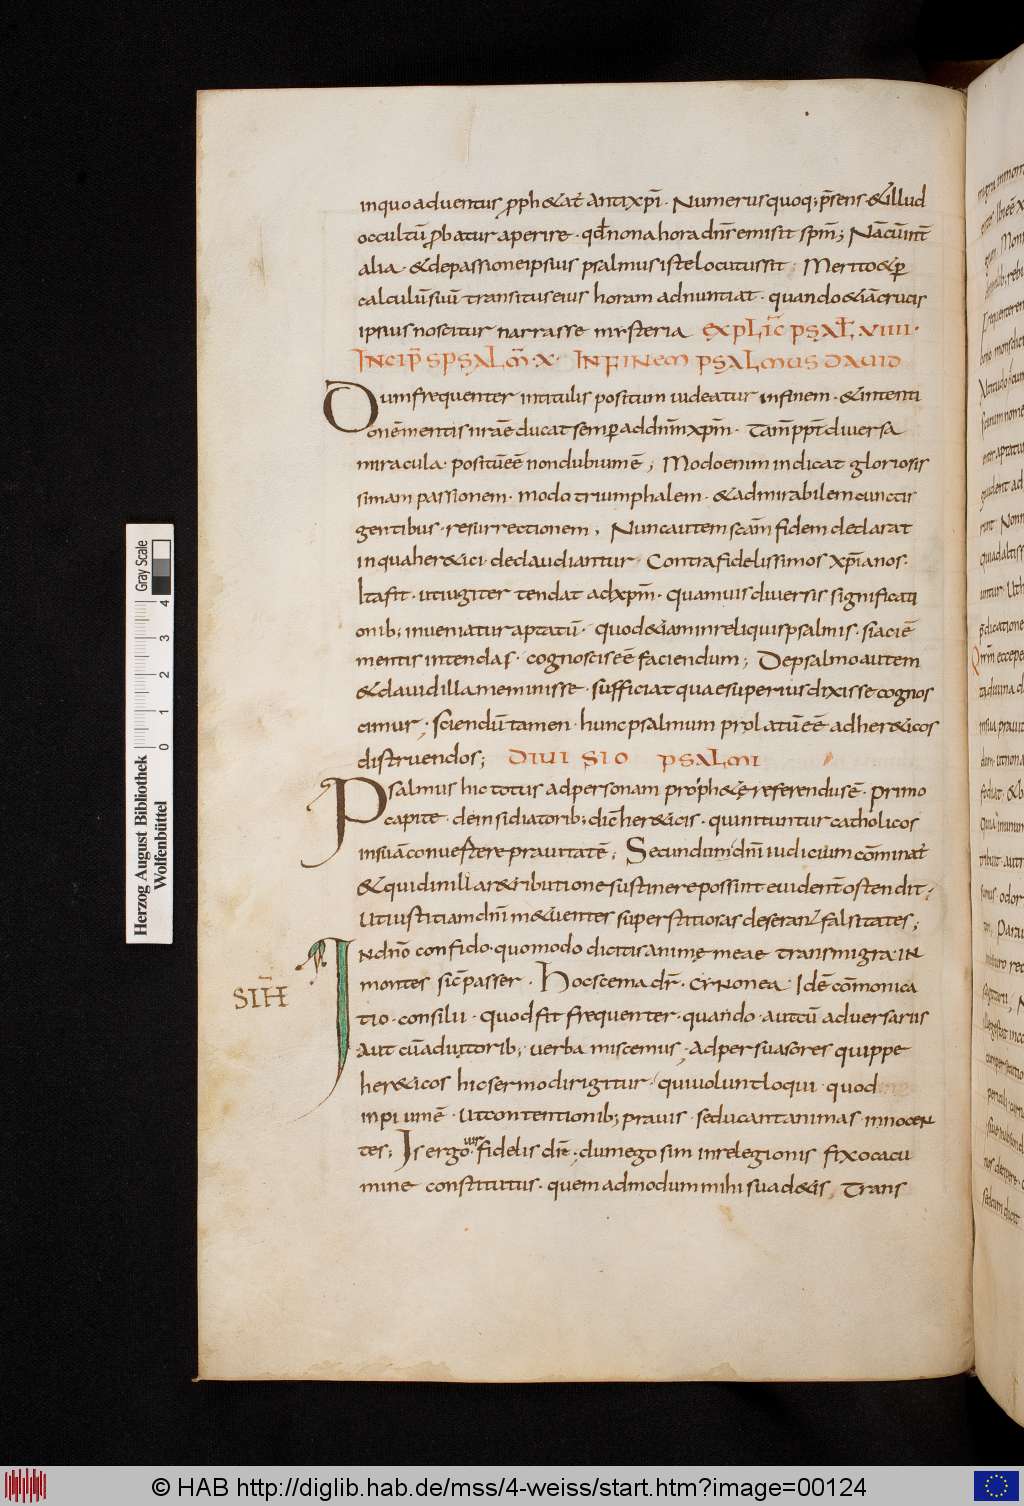 inquo adventus pph&at antixpi. Numerus quoq; psens &illud
occultū pbatur aperire. qđ nona hora dns emisit spm; Nā cū int
alia. &depassione ipsius psalmus iste locutus sit. Merito & p
calculū suū transitus eius horam adnuntiat. quando & iā crucis
ipsius noscitur narrasse mysteria EXPLIC PSAL. VIIII.
INCIP SPSALM. X. IN FINEM PSALMUS DAVID
Dum frequenter intitulis positum videatur infinem. & intenti
onē mentis nrae ducat semp ad dnm xpm. Tam ppt diversa
miracula. positū eē non dubium ē; Modo enim indicat gloriosis
simam passionem. modo triumphalem. & admirabilem cunctis
gentibus. resurrectionem. Nunc autem scam fidem declarat
in qua her&ici. declaudiantur. Contra fidelissimos xpianos.
Ita fit. ut iugiter tendat ad xpm. Quamvis diversis significati
onib; inveniatur aptatū. Quod &iam inreliquis psalmis. si aciē
mentis intendas. cognoscis eē faciendum; De psalmo autem
& david illa meminisse. sufficiat quae superius dixisse cognos
cimur; sciendū tamen. hunc psalmum prolatū eē ad her&icos
distruendos; DIVISIO PSALMI
Psalmus hic totus ad personam proph&ę referendus ē. Primo
capite. de insidiatorib; dic her&icis. qui nituntur catholicos
in suā convertere pravitatē; Secundum dni iudicium cōminat
& quid in illa r&ributione sustinere possint evident ostendit;
Ut iustitiam dni m&uentes superstitiosas deseran falsitates;
In dno confido. quomodo dicitis animę meae transmigra. in
montes sic passer. Hoc scema dr. erNonea. Idē cōmonica
SIH
tio. consilii. Quod fit frequenter. quando. aut cū adversariis
aut cū adiutorib; verba miscemus. Ad persuasores quippe
her&icos hic sermo dirigitur. qui volunt loqui. quod
inpium ē. Ut contentionib; pravis. seducant animas innocen
tes; Is ergo vir fidelis dic; dum ego sim in relegionis fixo cacu
mine constitutus. quem ad modum mihi suad&is. Trans
Herzog August Bibliothek
Wolfenbüttel
0 1 2 3 4
Gray Scale
© HAB http://diglib.hab.de/mss/4-weiss/start.htm?image=00124